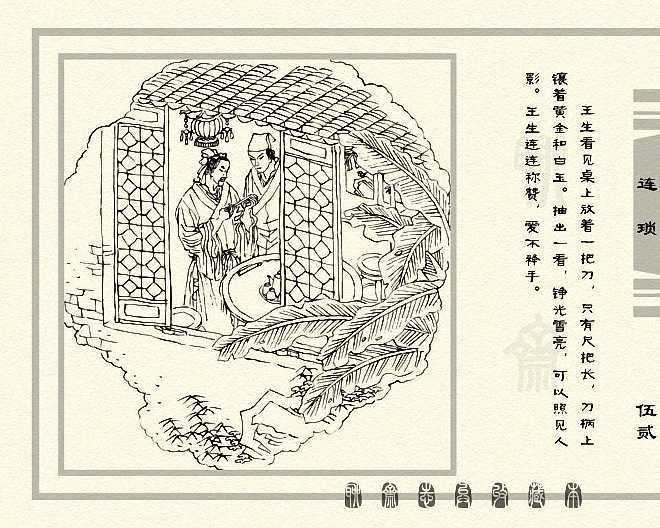 王生看见桌上放着一把刀，只有尺把长，刀柄上
镶着黄金和白玉。抽出一看，铮光雪亮，可以照见人
影。王生连连称赞，爱不释手。
连琐
伍贰